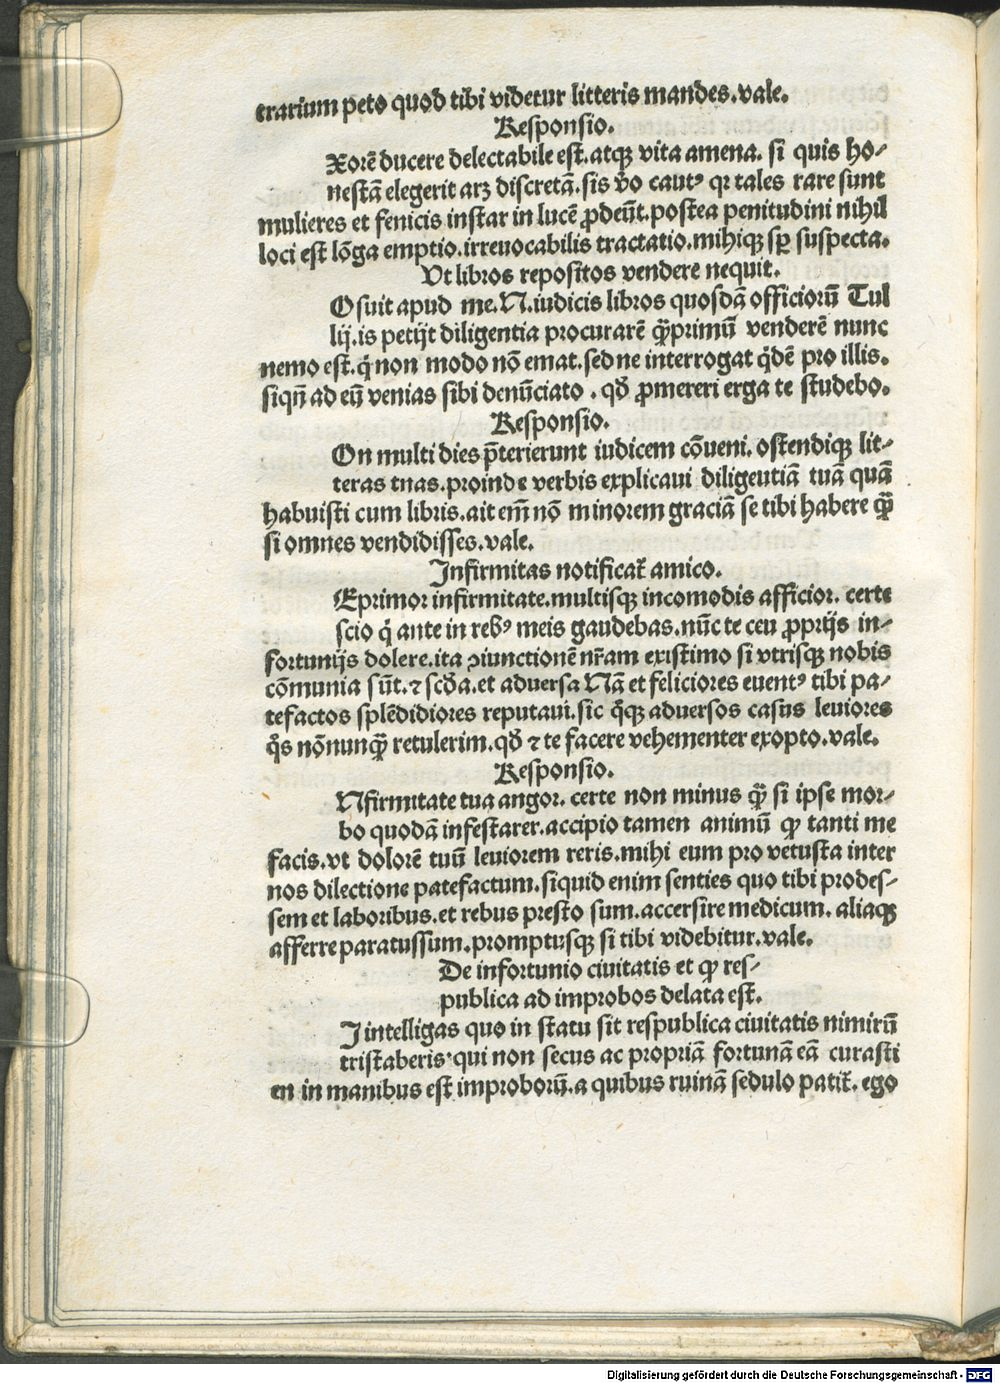 trarium peto quod tibi videtur litteris mandes.vale.
Responsio.
Xorē ducere delectabile est.atqꝫ vita amena. si quis ho⸗
nestā elegerit atqꝫ discretā.sis v̄o cautꝰ qꝛ tales rare sunt
mulieres et fenicis instar in lucē ꝓdeūt.postea penitudini nihil
loci est lōga emptio.irreuocabilis tractatio.mihiqꝫ sꝑ suspecta.
Ut libros repositos vendere nequit.
Osuit apud me.N.iudicis libros quosdā officioꝛū Tul
lij.is petijt diligentia procurarē qᷓꝫprimū venderē nunc
nemo est.q̇ non modo nō emat.sed ne interrogat q̇dē pro illis.
siqn̄ ad eū venias sibi denūciato.qd̄ ꝓmereri erga te studebo.
Responsio.
On multi dies p̄terierunt iudicem cōueni.ostendiqꝫ lit⸗
teras tuas.proinde verbis explicaui diligentiā tuā quā
habuisti cum libris.ait em̄ nō minorem graciā se tibi habere qᷓꝫ
si omnes vendidisses.vale.
Infirmitas notificat᷑ amico.
Eprimoꝛ infirmitate.multisqꝫ incomodis afficioꝛ. certe
scio q̇ ante in rebꝰ meis gaudebas.nūc te ceu ꝓprijs in⸗
fortunijs dolere.ita ꝯiunctionē nr̄am existimo si vtrisqꝫ nobis
cōmunia sūt.⁊ scd̄a.et aduersa Nā et feliciores euentꝰ tibi pa⸗
tefactos splēdidiores reputaui.sic q̇qꝫ aduersos casus leuiores
q̇s nōnunqᷓꝫ retulerim.qd̄ ⁊ te facere vehementer exopto.vale.
Responsio.
Nfirmitate tua angoꝛ. certe non minus qᷓꝫ si ipse moꝛ⸗
bo quodā infestarer.accipio tamen animū ꝙ tanti me
facis.vt dolorē tuū leuiorem reris.mihi eum pro vetusta inter
nos dilectione patefactum.siquid enim senties quo tibi prodes⸗
sem et laboribus.et rebus presto sum.accersire medicum. aliaqꝫ
afferre paratussum.promptusqꝫ si tibi videbitur.vale.
De infoꝛtunio ciuitatis et ꝙ res⸗
publica ad improbos delata est.
I intelligas quo in statu sit respublica ciuitatis nimirū
tristaberis·qui non secus ac propriā fortunā eā curasti
en in manibus est improboꝛū.a quibus ruinā sedulo patit᷑. ego
Digitalisierung gefördert durch die Deutsche Forschungsgemeinschaft - DFG